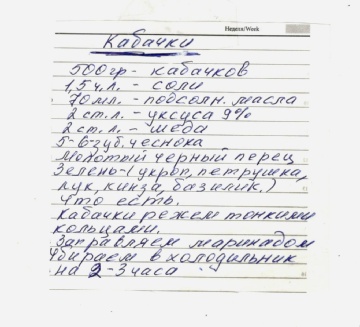 Неделя/Week
Кабачки
500гр - кабачков
1,5 ч.л. - соли
70мл. - подсолн. масла
2 ст.л. - уксуса 9%
2 ст.л. - мёда
5-6 зуб. чеснока
Молотый черный перец
Зелень-(укроп, петрушка,
лук, кинза, базилик.)
Что есть.
Кабачки режем тонкими
кольцами.
Заправляем маринадом
Убираем в холодильник
на 2-3 часа